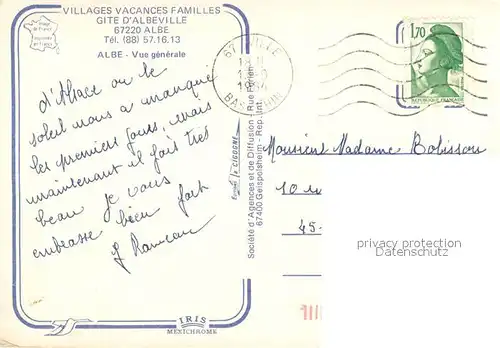 VILLAGES VACANCES FAMILLES
GITE D'ALBEVILLE
67220 ALBE
Tél. (88) 57.16.13
ALBE - Vue générale
67 VILLE
BAS RHIN
1,70
REPUBLIQUE FRANCAISE
d'Alsace ou le
soleil nous a manqué
les premiers jours, mais
maintenant il fait très
beau je vous
embrasse bien fort
J Rameau
Editions la CIGOGNE
Société d'Agences et de Diffusion - Rue
67400 Geispolsheim - Rep. Int.
Monsieur Madame Bobisson
10 ru
45-
privacy protection
Ansichtskarten-Center.de
IRIS
MEXICHROME